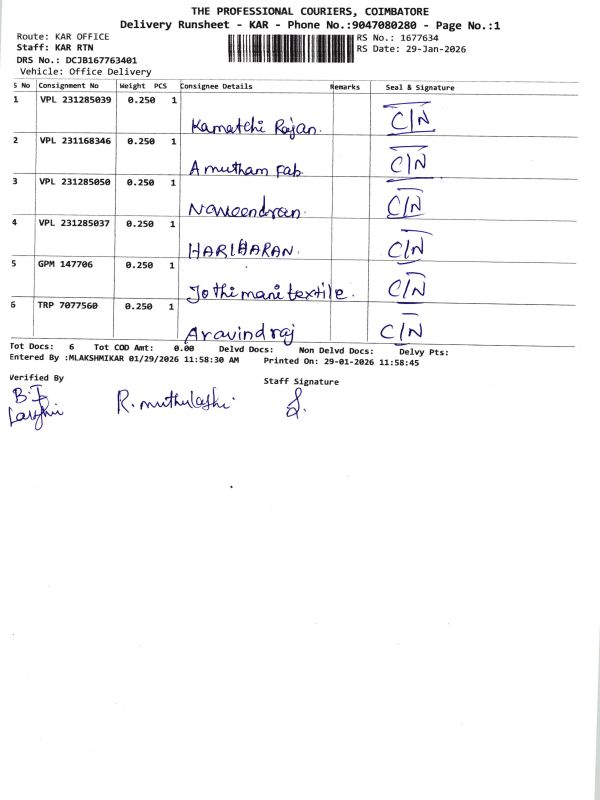 THE PROFESSIONAL COURIERS, COIMBATORE
Delivery Runsheet - KAR - Phone No.:9047080280 - Page No.:1
Route: KAR OFFICE RS No.: 1677634
Staff: KAR RTN RS Date: 29-Jan-2026
DRS No.: DCJB167763401
Vehicle: Office Delivery
S No Consignment No Weight PCS Consignee Details Remarks Seal & Signature
1 VPL 231285039 0.250 1
Kamatchi Rajan. C/N
2 VPL 231168346 0.250 1
Amutham Fab. C/N
3 VPL 231285050 0.250 1
Naveendran. C/N
4 VPL 231285037 0.250 1
HARIHARAN. C/N
5 GPM 147706 0.250 1
Jothimani textile. C/N
6 TRP 7077560 0.250 1
Aravindraj C/N
Tot Docs: 6 Tot COD Amt: 0.00 Delvd Docs: Non Delvd Docs: Delvy Pts:
Entered By :MLAKSHMIKAR 01/29/2026 11:58:30 AM Printed On: 29-01-2026 11:58:45
Verified By Staff Signature
R. muthulakshi.